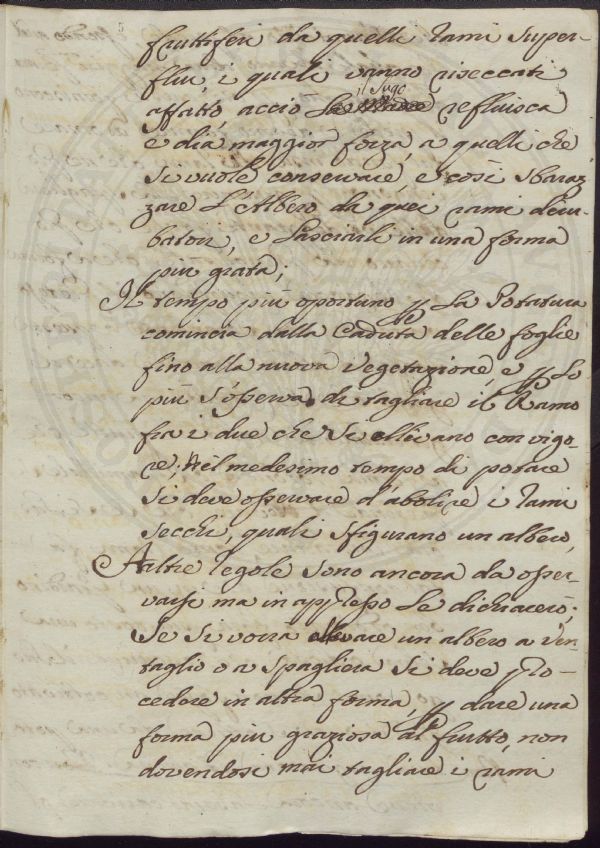 fruttiferi da quelli rami super-
flui, i quali vanno riseccati
il Sugo
affatto, acciò refluisca
e dia maggior forza, a quelli che
si vuole conservare, e così sbaraz
zare l'Albero da quei rami distur-
batori, e lasciarli in una forma
più grata;
Il tempo più oportuno p la Potatura
comincia dalla Caduta delle foglie
fino alla nuova Vegetazione, e p lo
più s'osserva di tagliare il Ramo
fra i due che si ellivano con vigo-
re; Nel medesimo tempo di potare
si deve osservare d'abolire i rami
secchi, quali sfigurano un albero,
Aaltre regole sono ancora da osser-
varsi ma in appresso le dichiarerò;
Se si vorrà allevare un albero a Ven-
taglio o a spagliera si deve pro-
cedere in altra forma, p dare una
forma più graziosa al frutto, non
dovendosi mai tagliare i rami